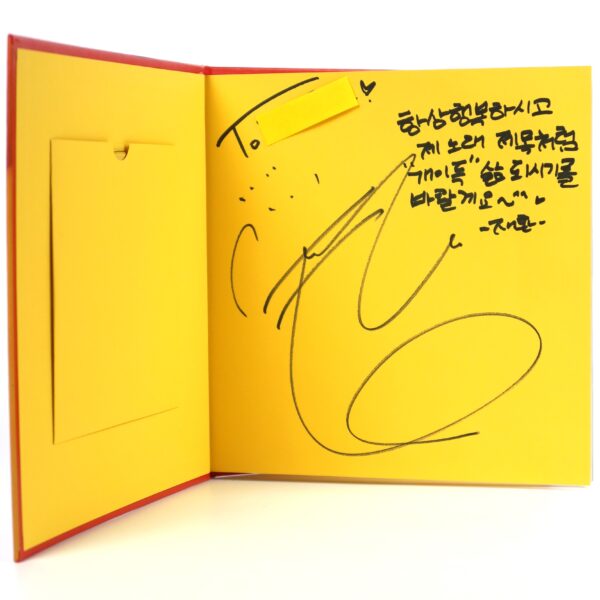 To.
항상 행복하시고
제 노래 제목처럼
"개이득" 삶 되시기를
바랄게요~^^
-재환-